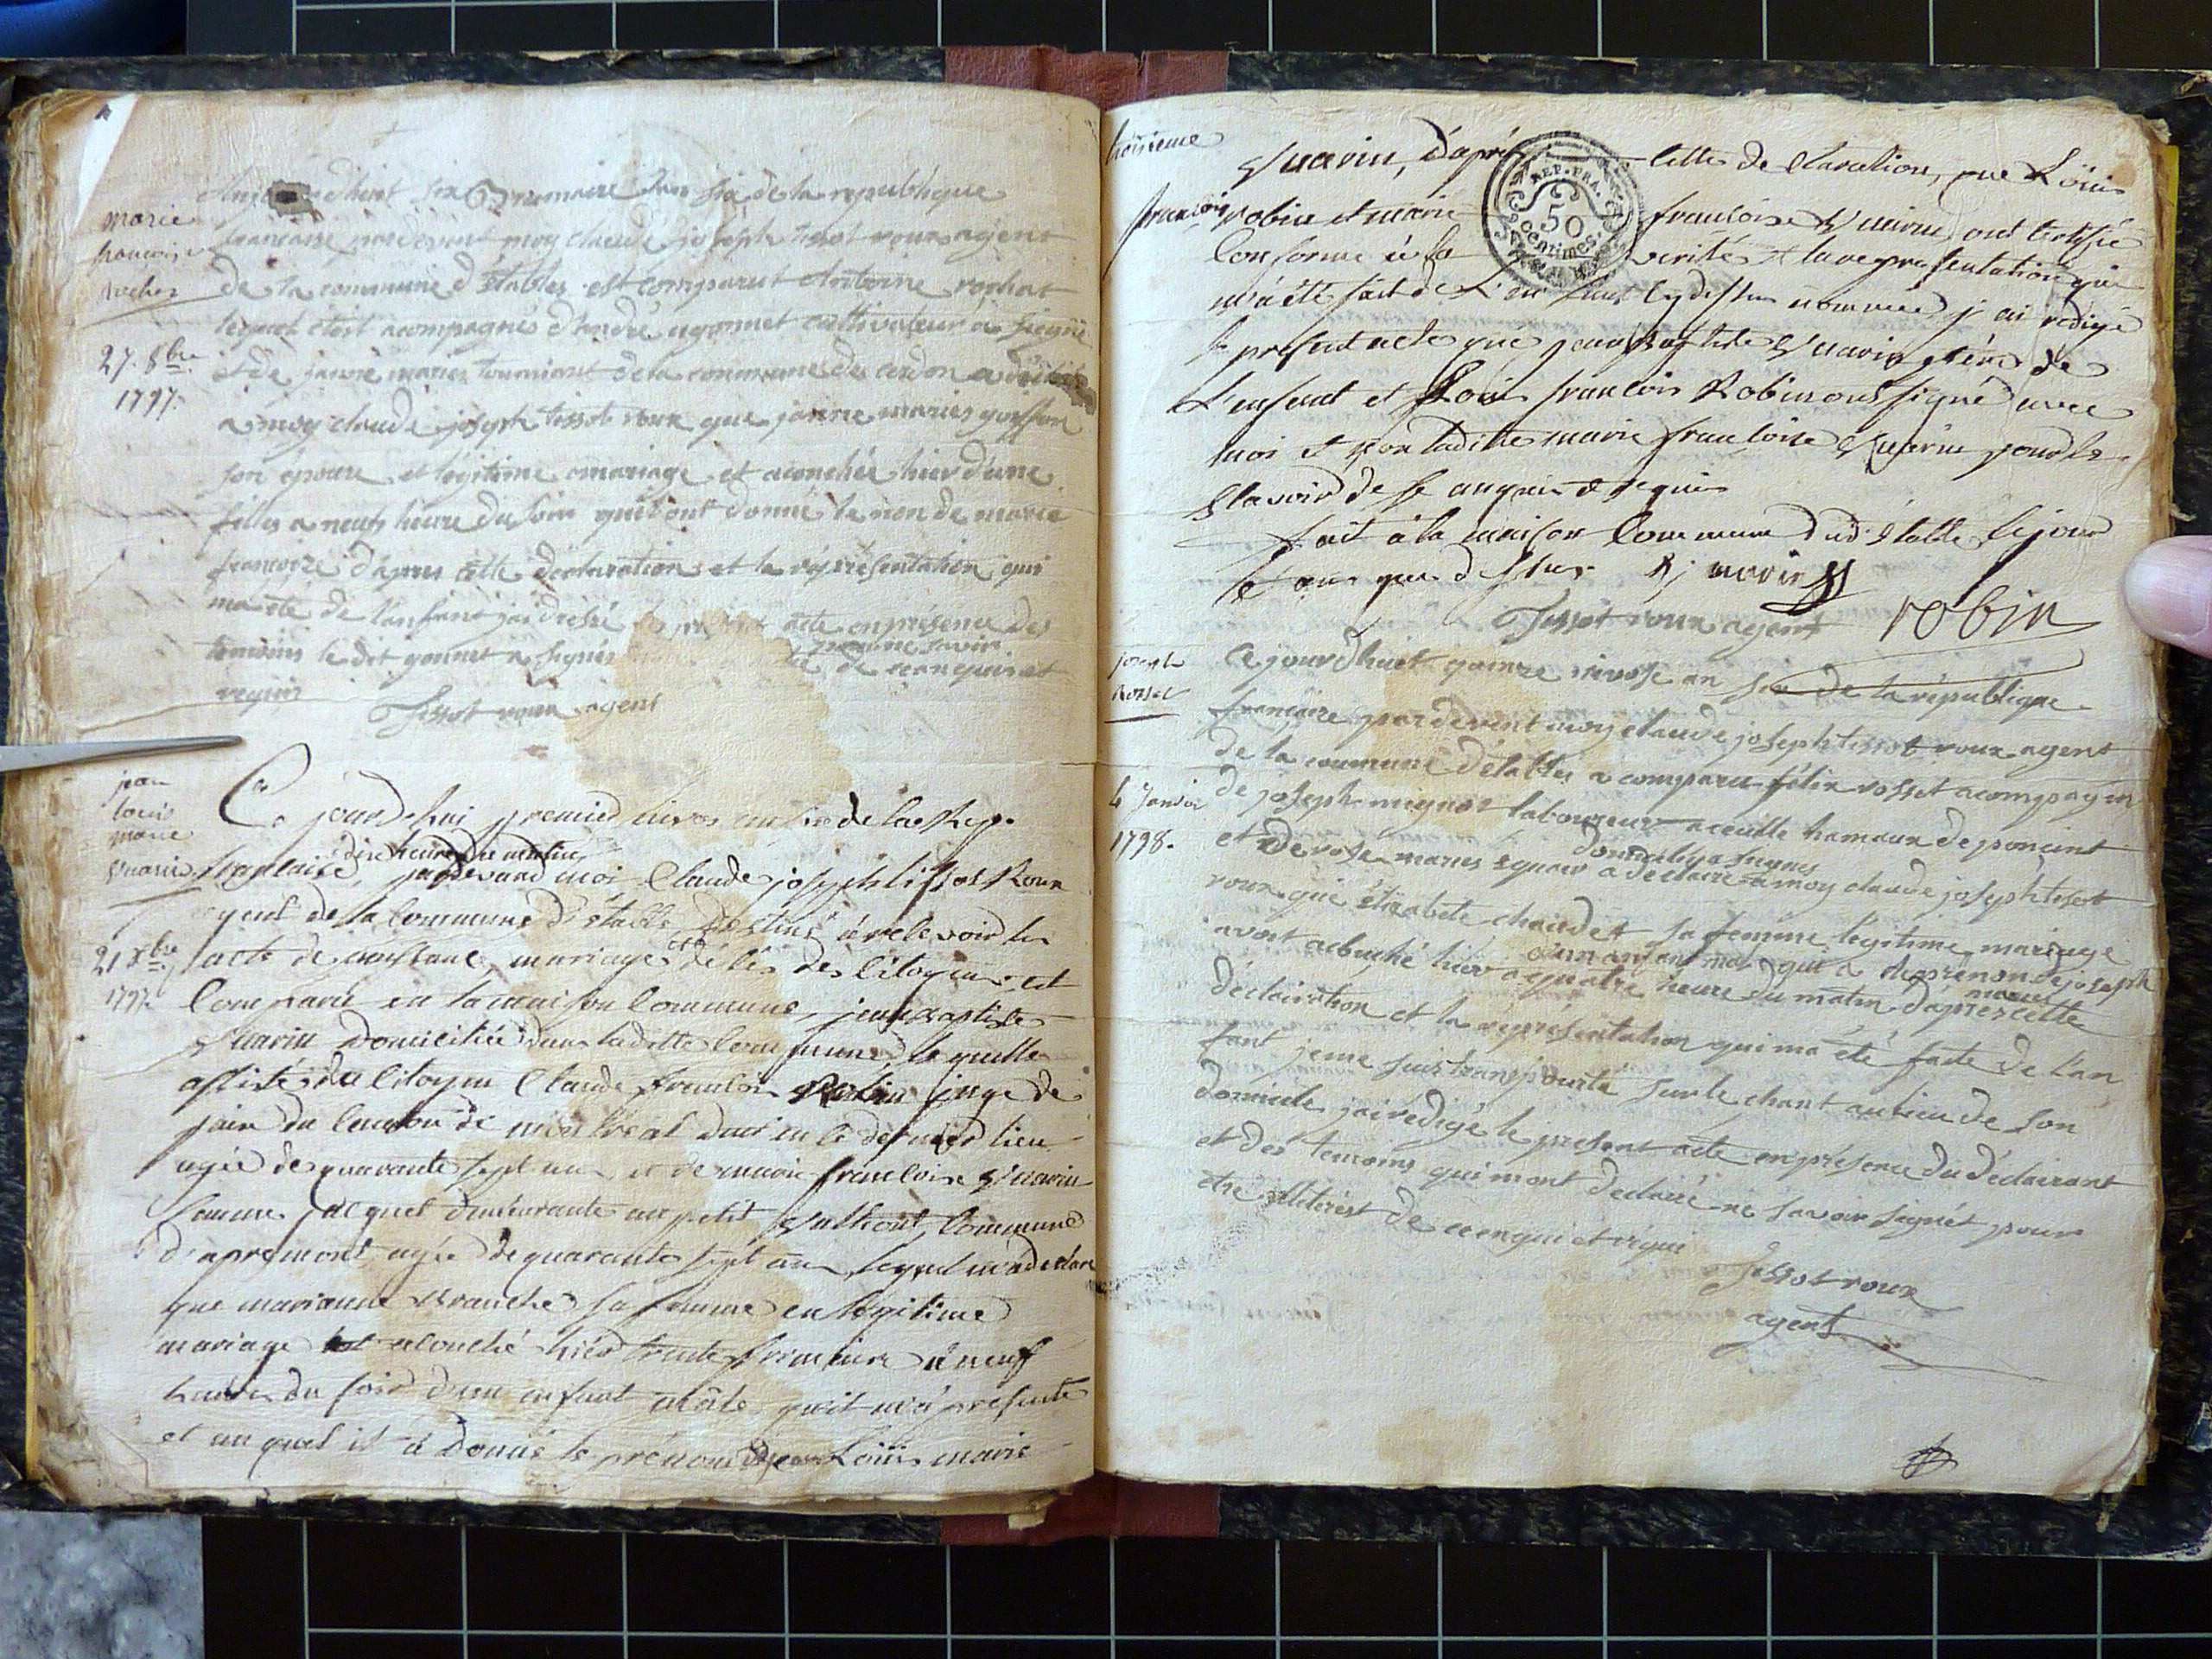 marie
francoise
27. 8bre
1797.
dhuit six Brumaire l'an six de la republique
francaise pardevent moy claude joseph tissot roux agent
de la commune d'Etables est comparut Antoine rochat
lequel étoit acompagnés d'andré gonnet cultivateur
et de janne maries tournient de la commune de cerdon a déclaré
a moy claude joseph tissot roux que janne maries
son épouse et légitime mariage et acouchée hier d'une
filles a neufs heure du soire quil ont donné le nom de marie
francoize d'apres cette déclaration et la représentation qui
ma été de l'anfant jai dresé le présent acte en présence des
témoins le dit gonnet a signés de ce anquis et
requis
Tissot roux agent
jean
louis
marie
21 Xbre
1797
Ce jourdhui premier nivos an six de la Rep.
dix heure du matin
francaise, pardevand moi Claude joseph tissot Roux
agent de la Commune d'étable, destiné à recevoir les
acte de naissance, mariage et décès des Citoyens, est
Comparu en la maison Commune, jean Baptiste
domicilié dans laditte Commune, le quelle
assisté du Citoyen Claude francois Robin juge de
paix du Canton de montréal dans le dernier lieu
agée de quarante sept ans, et de marie francoise
femme jacquet demeurante au petit Commune
d'apremont agée de quarante sept ans, lequel m'a déclaré
que marianne Branche sa femme en légitime
mariage est acouché hier trente frimaire à neuf
heures du soir d'un enfant mâle quil m'a présenté
et au quel il a donné le prénom de jean Louis marie
troisieme
d'après cette declaration, que Loüis
REP. FRA.
50
centimes
françois robin et marie francoise ont certifié
Conforme à la verité et la representation qui
m'a été fait de L'enfant cy dessus nommée j'ai redigé
le present acte que jean Baptiste père de
L'enfant et Louis francois Robin ont signé avec
moi et non laditte marie francoise pour ne
sçavoir de ce anquis et requis
fait à la maison Commune dud. étable le jour
et ans que dessus.
Tissot roux agent robin
joseph
Rosset
4 Janvier
1798.
Ce jourdhuit quinze nivose an six de la république
françaize pardevent moy claude joseph tissot roux agent
de la commune d'étables a comparu félix rosset acompagné
de joseph mignot laboureur a ceuille hamaux de poncint
domicilie a
et de rose maries a déclairé a moy claude joseph tissot
roux que élizabete chaudet sa femme légitime mariage
d'un anfant mal qui a le prénon de joseph
avoit acouché hier a quatre heure du matin d'apres cette
maries
déclairation et la représentation qui ma été faite de l'an
fant jeme suis transpourté sur le chant au lieu de son
domicile jai redigé le présent acte en présence du déclairant
et dés temoins qui mont declairé ne savoir signér pour
etre illiterést de ce enqui et requi
Tissot roux
agent